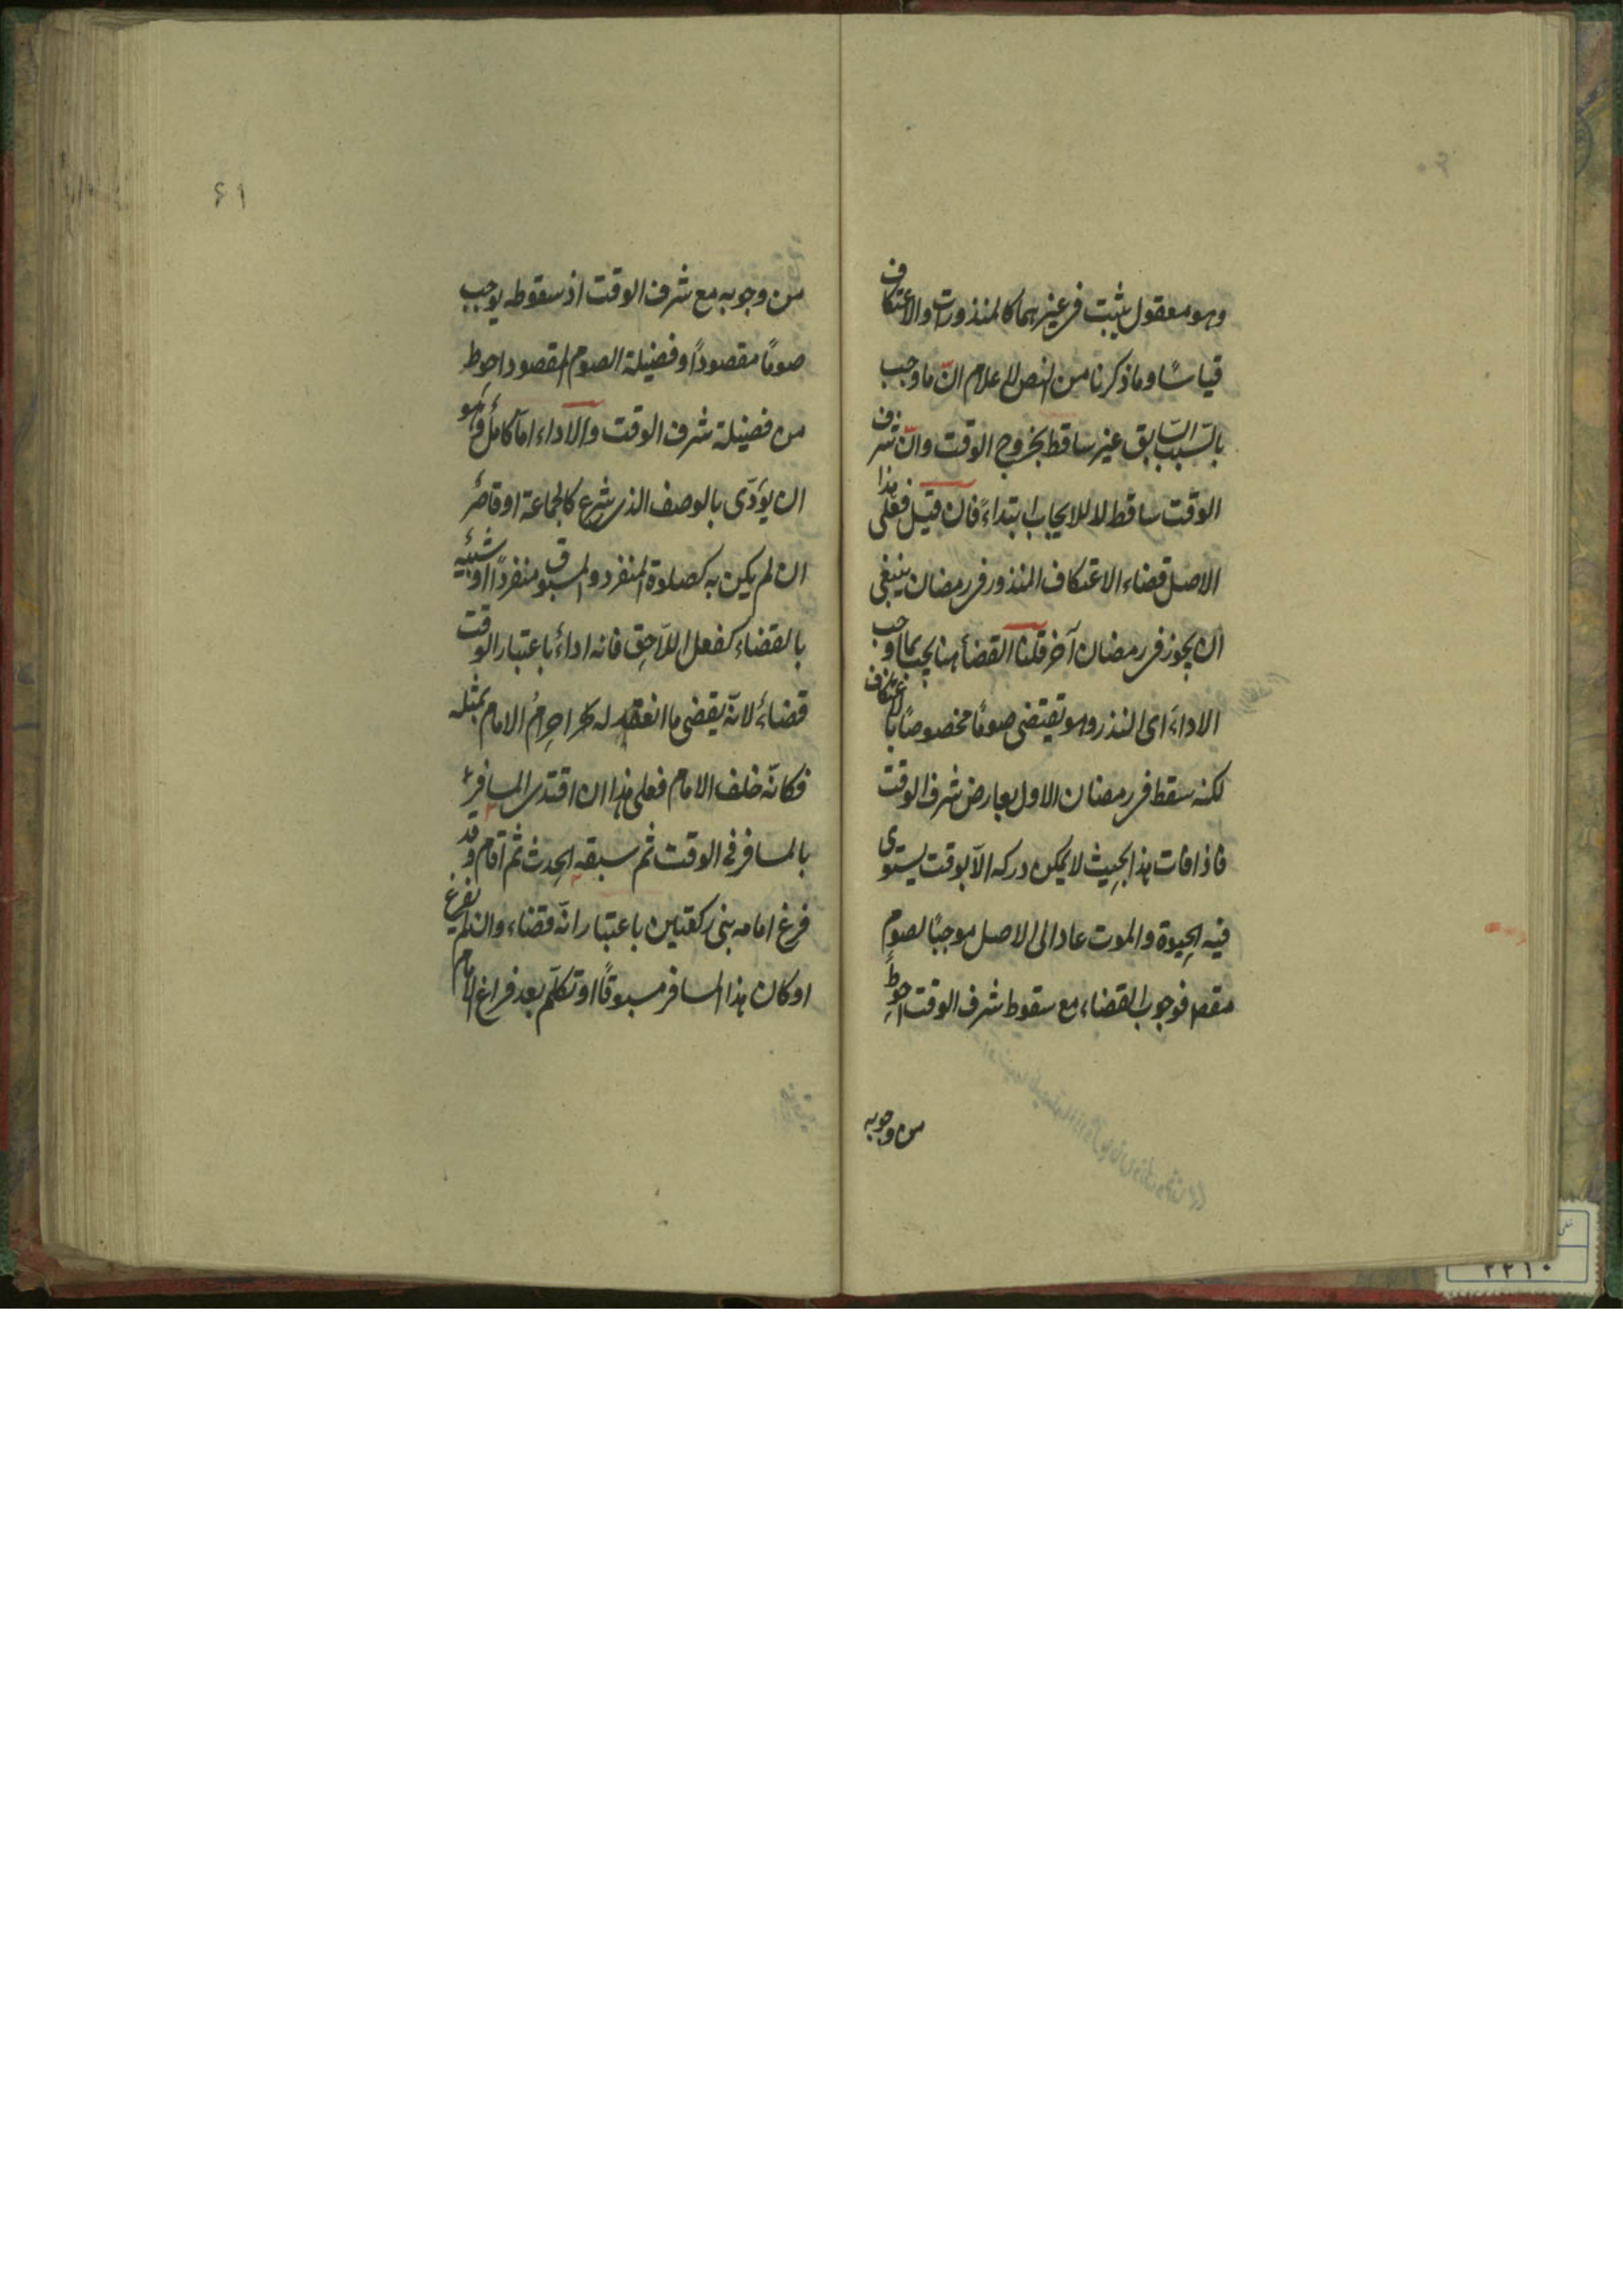 وهو معقول يثبت فى غيرهما كالمنذورات والاعتكاف
قياسًا وما ذكرنا من النص لاعلام انّ ما وجب
بالسّبب السّابق غير ساقط بخروج الوقت وانّ شرف
الوقت ساقط لا للايجاب ابتداءً فان قيل فعلى هذا
الاصل قضاء الاعتكاف المنذور فى رمضان ينبغى
ان يجوز فى رمضان آخر قلنا القضأ هنا يجب بما اوجب
الاداءَ اى النذر وهو تقتضى صومًا مخصوصًا بالاعتكاف
لكنه سقط فى رمضان الاول بعارض شرف الوقت
فاذا فات هذا بحيث لا يمكن دركه الّا بوقت يستوى
فيه الحيوة والموت عاد الى الاصل موجبًا لصوم
فوجوب القضاء مع سقوط شرف الوقت احوط
من وجوبه
٦١
من وجوبه مع شرف الوقت اذ سقوطه يوجب
صومًا مقصودًا وفضيلة الصوم المقصود احوط
من فضيلة شرف الوقت والاداء امّا كامل وهو
ان يؤدّى بالوصف الذى شرع كالجماعة او قاصر
ان لم يكن به كصلوة المنفرد والمسبوق منفردًا او شبيه
بالقضاء كفعل اللاحق فانه اداءٌ باعتبار الوقت
قضاءٌ لانّه يقضى ما انعقد له احرامُ الامام بمثله
فكانّه خلف الامام فعلى هذا ان اقتدى المسافر
بالمسافر فى الوقت ثم سبقه الحدث ثم اقام وقد
فرغ امامه بنى ركعتين باعتبار انّه قضاء وان لم يفرغ
او كان هذا المسافر مسبوقًا او تكلّم بعد فراغ الامام
٢٢١٠